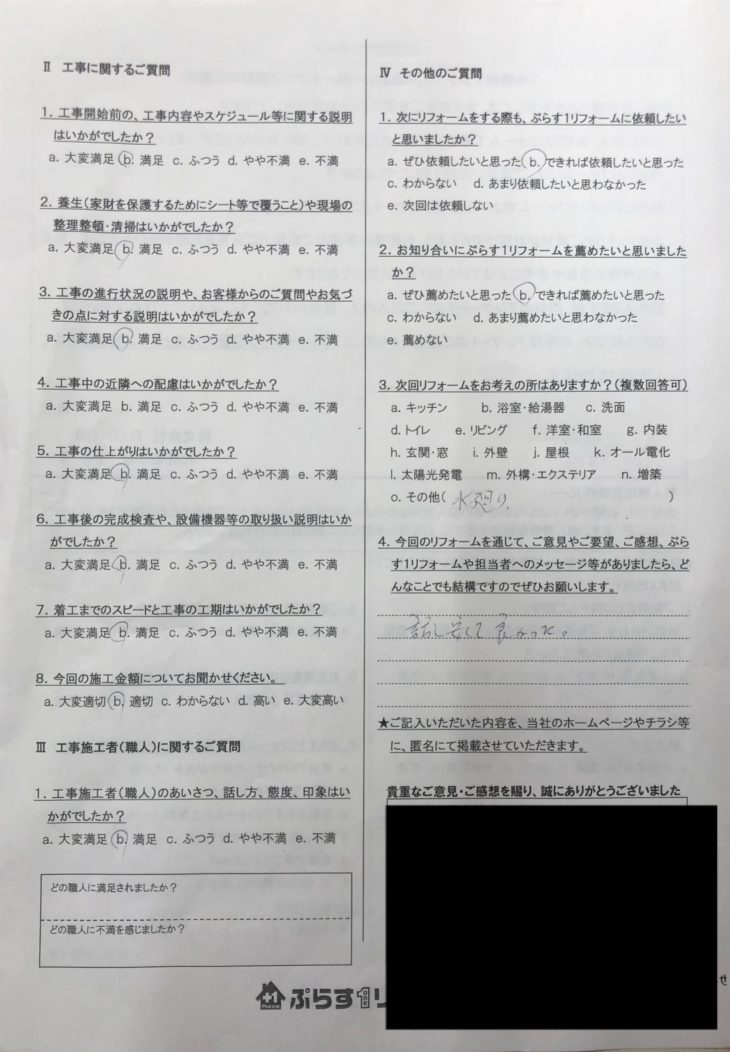 Ⅱ 工事に関するご質問
1. 工事開始前の、工事内容やスケジュール等に関する説明
はいかがでしたか？
a. 大変満足 b. 満足 c. ふつう d. やや不満 e. 不満
2. 養生(家財を保護するためにシート等で覆うこと)や現場の
整理整頓・清掃はいかがでしたか？
a. 大変満足 b. 満足 c. ふつう d. やや不満 e. 不満
3. 工事の進行状況の説明や、お客様からのご質問やお気づ
きの点に対する説明はいかがでしたか？
a. 大変満足 b. 満足 c. ふつう d. やや不満 e. 不満
4. 工事中の近隣への配慮はいかがでしたか？
a. 大変満足 b. 満足 c. ふつう d. やや不満 e. 不満
5. 工事の仕上がりはいかがでしたか？
a. 大変満足 b. 満足 c. ふつう d. やや不満 e. 不満
6. 工事後の完成検査や、設備機器等の取り扱い説明はいか
がでしたか？
a. 大変満足 b. 満足 c. ふつう d. やや不満 e. 不満
7. 着工までのスピードと工事の工期はいかがでしたか？
a. 大変満足 b. 満足 c. ふつう d. やや不満 e. 不満
8. 今回の施工金額についてお聞かせください。
a. 大変適切 b. 適切 c. わからない d. 高い e. 大変高い
Ⅲ 工事施工者(職人)に関するご質問
1. 工事施工者(職人)のあいさつ、話し方、態度、印象はい
かがでしたか？
a. 大変満足 b. 満足 c. ふつう d. やや不満 e. 不満
どの職人に満足されましたか？
どの職人に不満を感じましたか？
Ⅳ その他のご質問
1. 次にリフォームをする際も、ぷらす1リフォームに依頼したい
と思いましたか？
a. ぜひ依頼したいと思った b. できれば依頼したいと思った
c. わからない d. あまり依頼したいと思わなかった
e. 次回は依頼しない
2. お知り合いにぷらす1リフォームを薦めたいと思いました
か？
a. ぜひ薦めたいと思った b. できれば薦めたいと思った
c. わからない d. あまり薦めたいと思わなかった
e. 薦めない
3. 次回リフォームをお考えの所はありますか？(複数回答可)
a. キッチン b. 浴室・給湯器 c. 洗面
d. トイレ e. リビング f. 洋室・和室 g. 内装
h. 玄関・窓 i. 外壁 j. 屋根 k. オール電化
l. 太陽光発電 m. 外構・エクステリア n. 増築
o. その他( 水廻り )
4. 今回のリフォームを通じて、ご意見やご要望、ご感想、ぷら
す1リフォームや担当者へのメッセージ等がありましたら、ど
んなことでも結構ですのでぜひお願いします。
話し安くて良かった。
★ご記入いただいた内容を、当社のホームページやチラシ等
に、匿名にて掲載させていただきます。
貴重なご意見・ご感想を賜り、誠にありがとうございました
せ
+1 ぷらす1リ